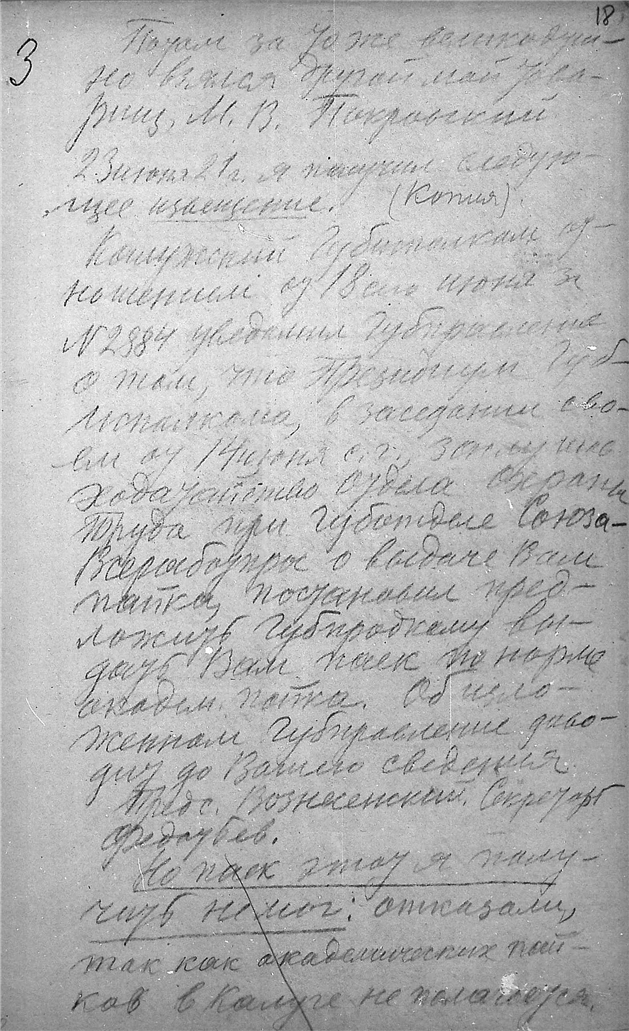 18
3
Потом за то же великодуш-
но взялся другой мой това-
рищ, М. В. Покровский
23 июня 21 г. я получил следую-
щее извещение. (Копия).
Калужский Губисполком от-
ношением от 18 сего июня за
N 2984 уведомил Губправление
о том, что Президиум Губ-
исполкома, в заседании сво-
ем от 14 июня с. г.,
ходатайство Отдела Охраны
Труда при Губотделе Союза
Всеработпрос о выдаче Вам
пайка, постановил пред-
ложить Губпродкому вы-
дать Вам паек по норме
академ. пайка. Об изло-
женном Губправление дово-
дит до Вашего сведения
Предс. Вознесенский. Секретарь
Федотьев.
Но паек этот я полу-
чить не мог: отказали,
так как академических пай-
ков в Калуге не полагается.